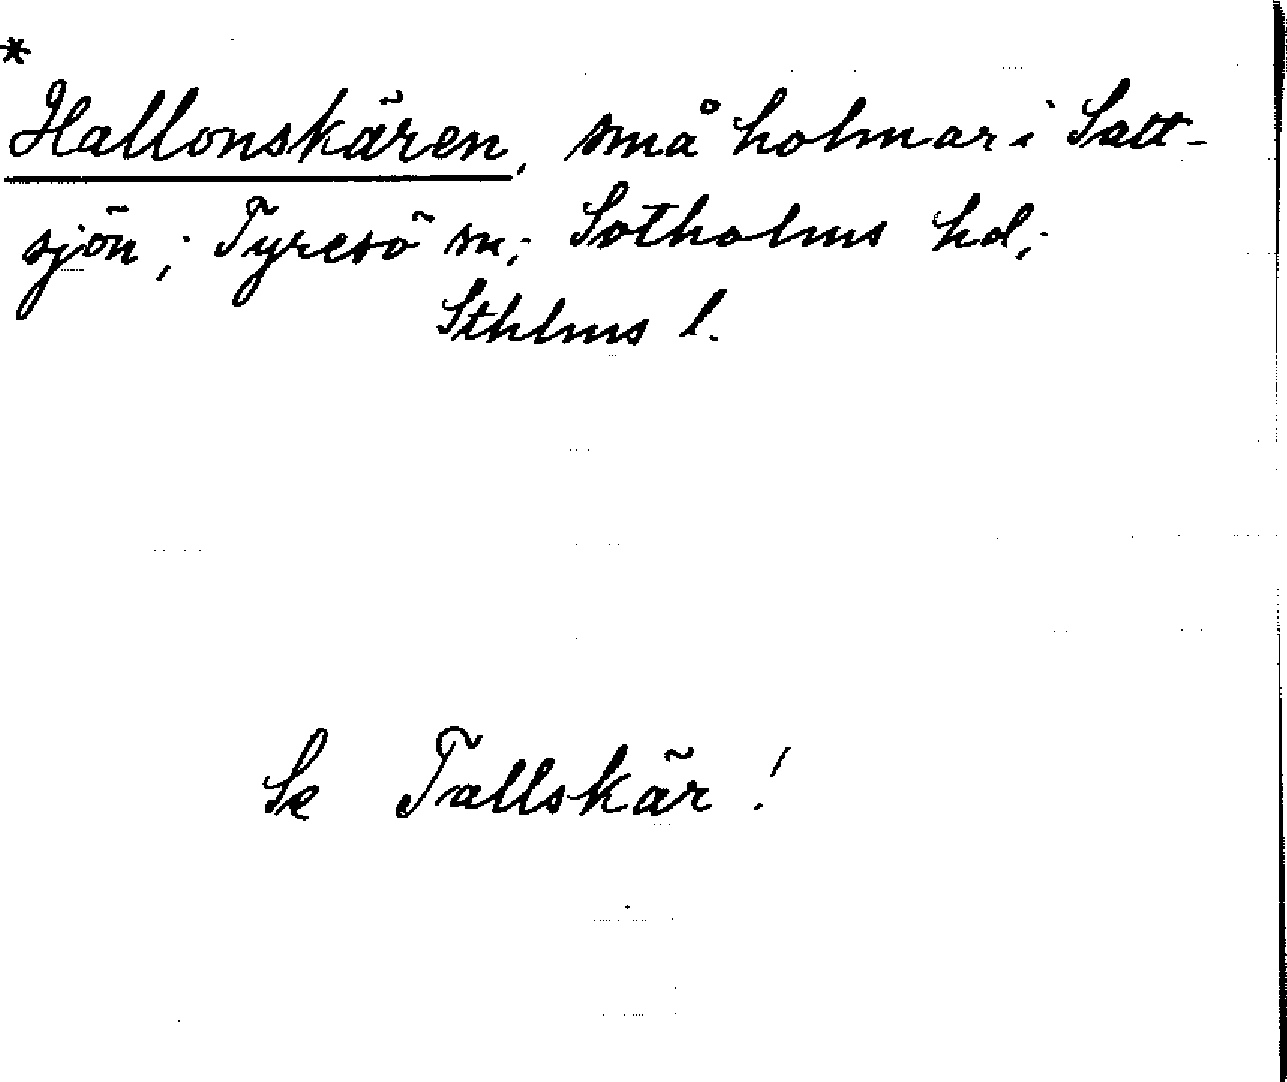 *
Hallonskären, små holmar i Salt-
sjön; Tyresö sn; Sotholms hd;
Sthlms l.
Se Tallskär!